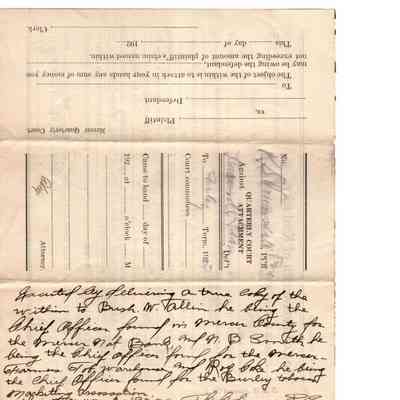 Clerk.
This day of , 192
not exceeding the amount of plaintiff's claim named within.
may be owing the defendant,
The object of the within is to attach in your hands any sum of money you
To
Defendant
vs.
Plaintiff
Mercer Quarterly Court
No.
QUARTERLY COURT
ATTACHMENT
Pl'ff
Against
Def't
To Term, 192
Court committees
Came to hand day of
192 , at o'clock M
Attorney.
Executed by delivering a true copy of the
within to Bush W. Allin he being the
Chief Officer found in Mercer County for
the Mercer Nat Bank and N. D. Smith he
being the Chief Officer found for the Mercer
Farmers Tob Warehouse and he being
the Chief Officer found for the Burley Tobacco
Marketing Association.